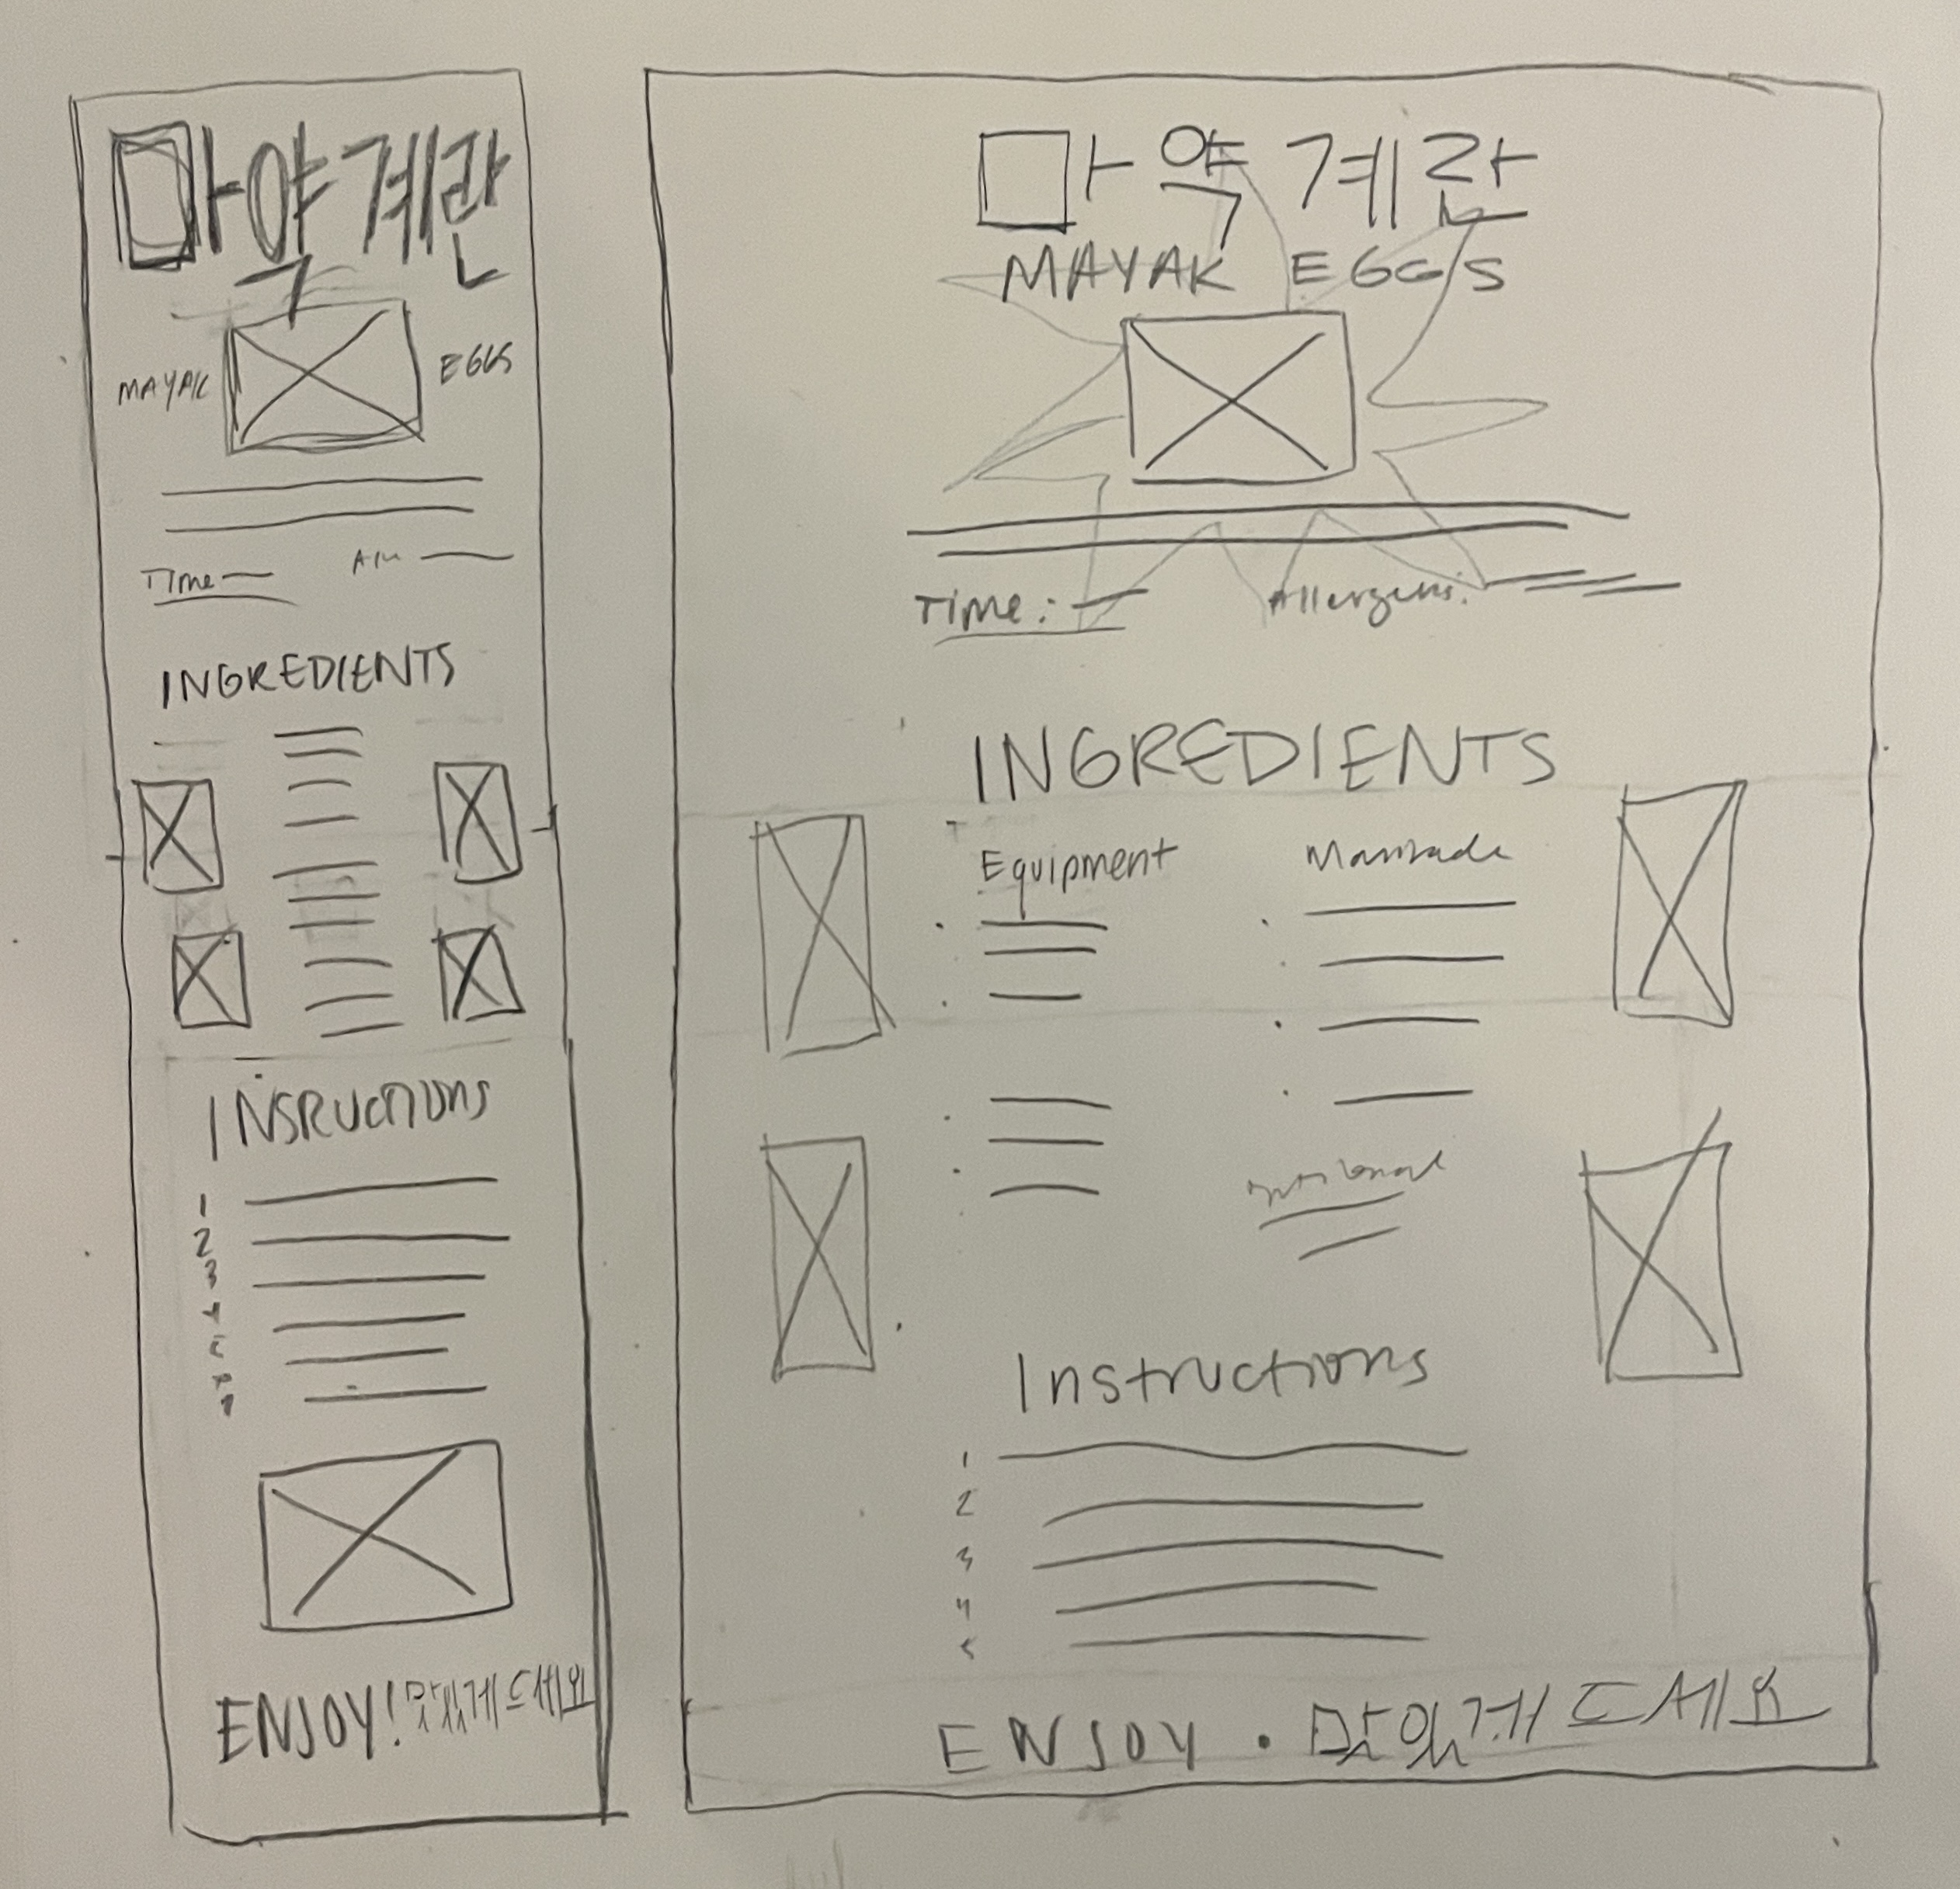 마약계란
MAYAK EGGS
Time
INGREDIENTS
INSRUCTIONS
1
2
3
4
5
7
ENJOY! 맛있게드세요
마약계란
MAYAK EGGS
Time: Allergens:
INGREDIENTS
Equipment
Optional
Instructions
1
2
3
4
5
ENJOY · 맛있게 드세요